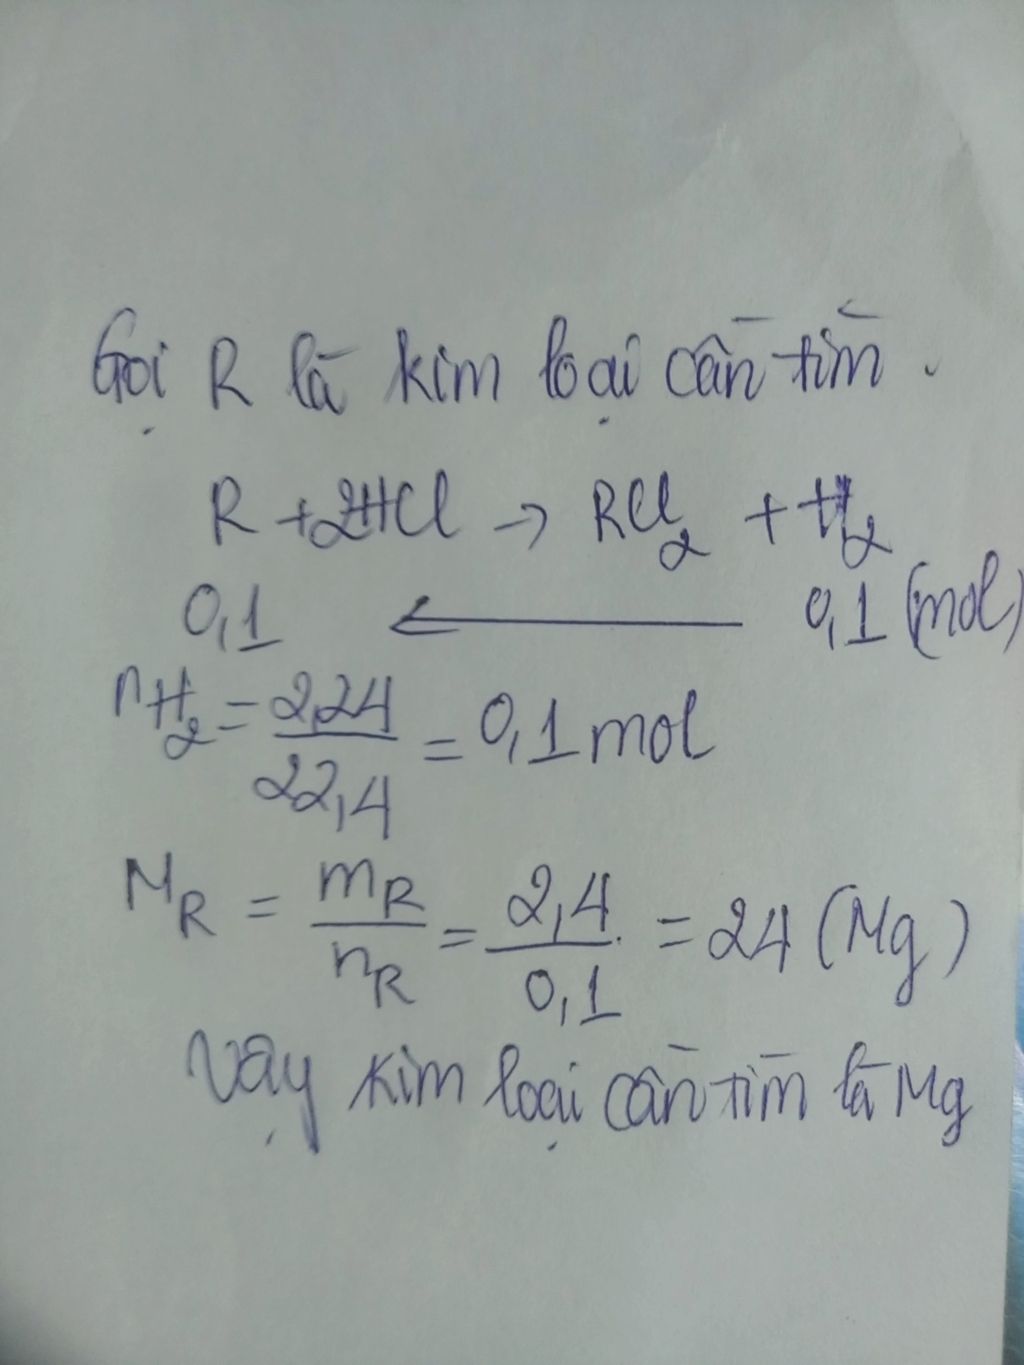 Gọi R là kim loại cần tìm.
R + 2HCl → RCl₂ + H₂
0,1 ← 0,1 (mol)
nH₂ = 2,24 / 22,4 = 0,1 mol
M_R = m_R / n_R = 2,4 / 0,1 = 24 (Mg)
Vậy kim loại cần tìm là Mg